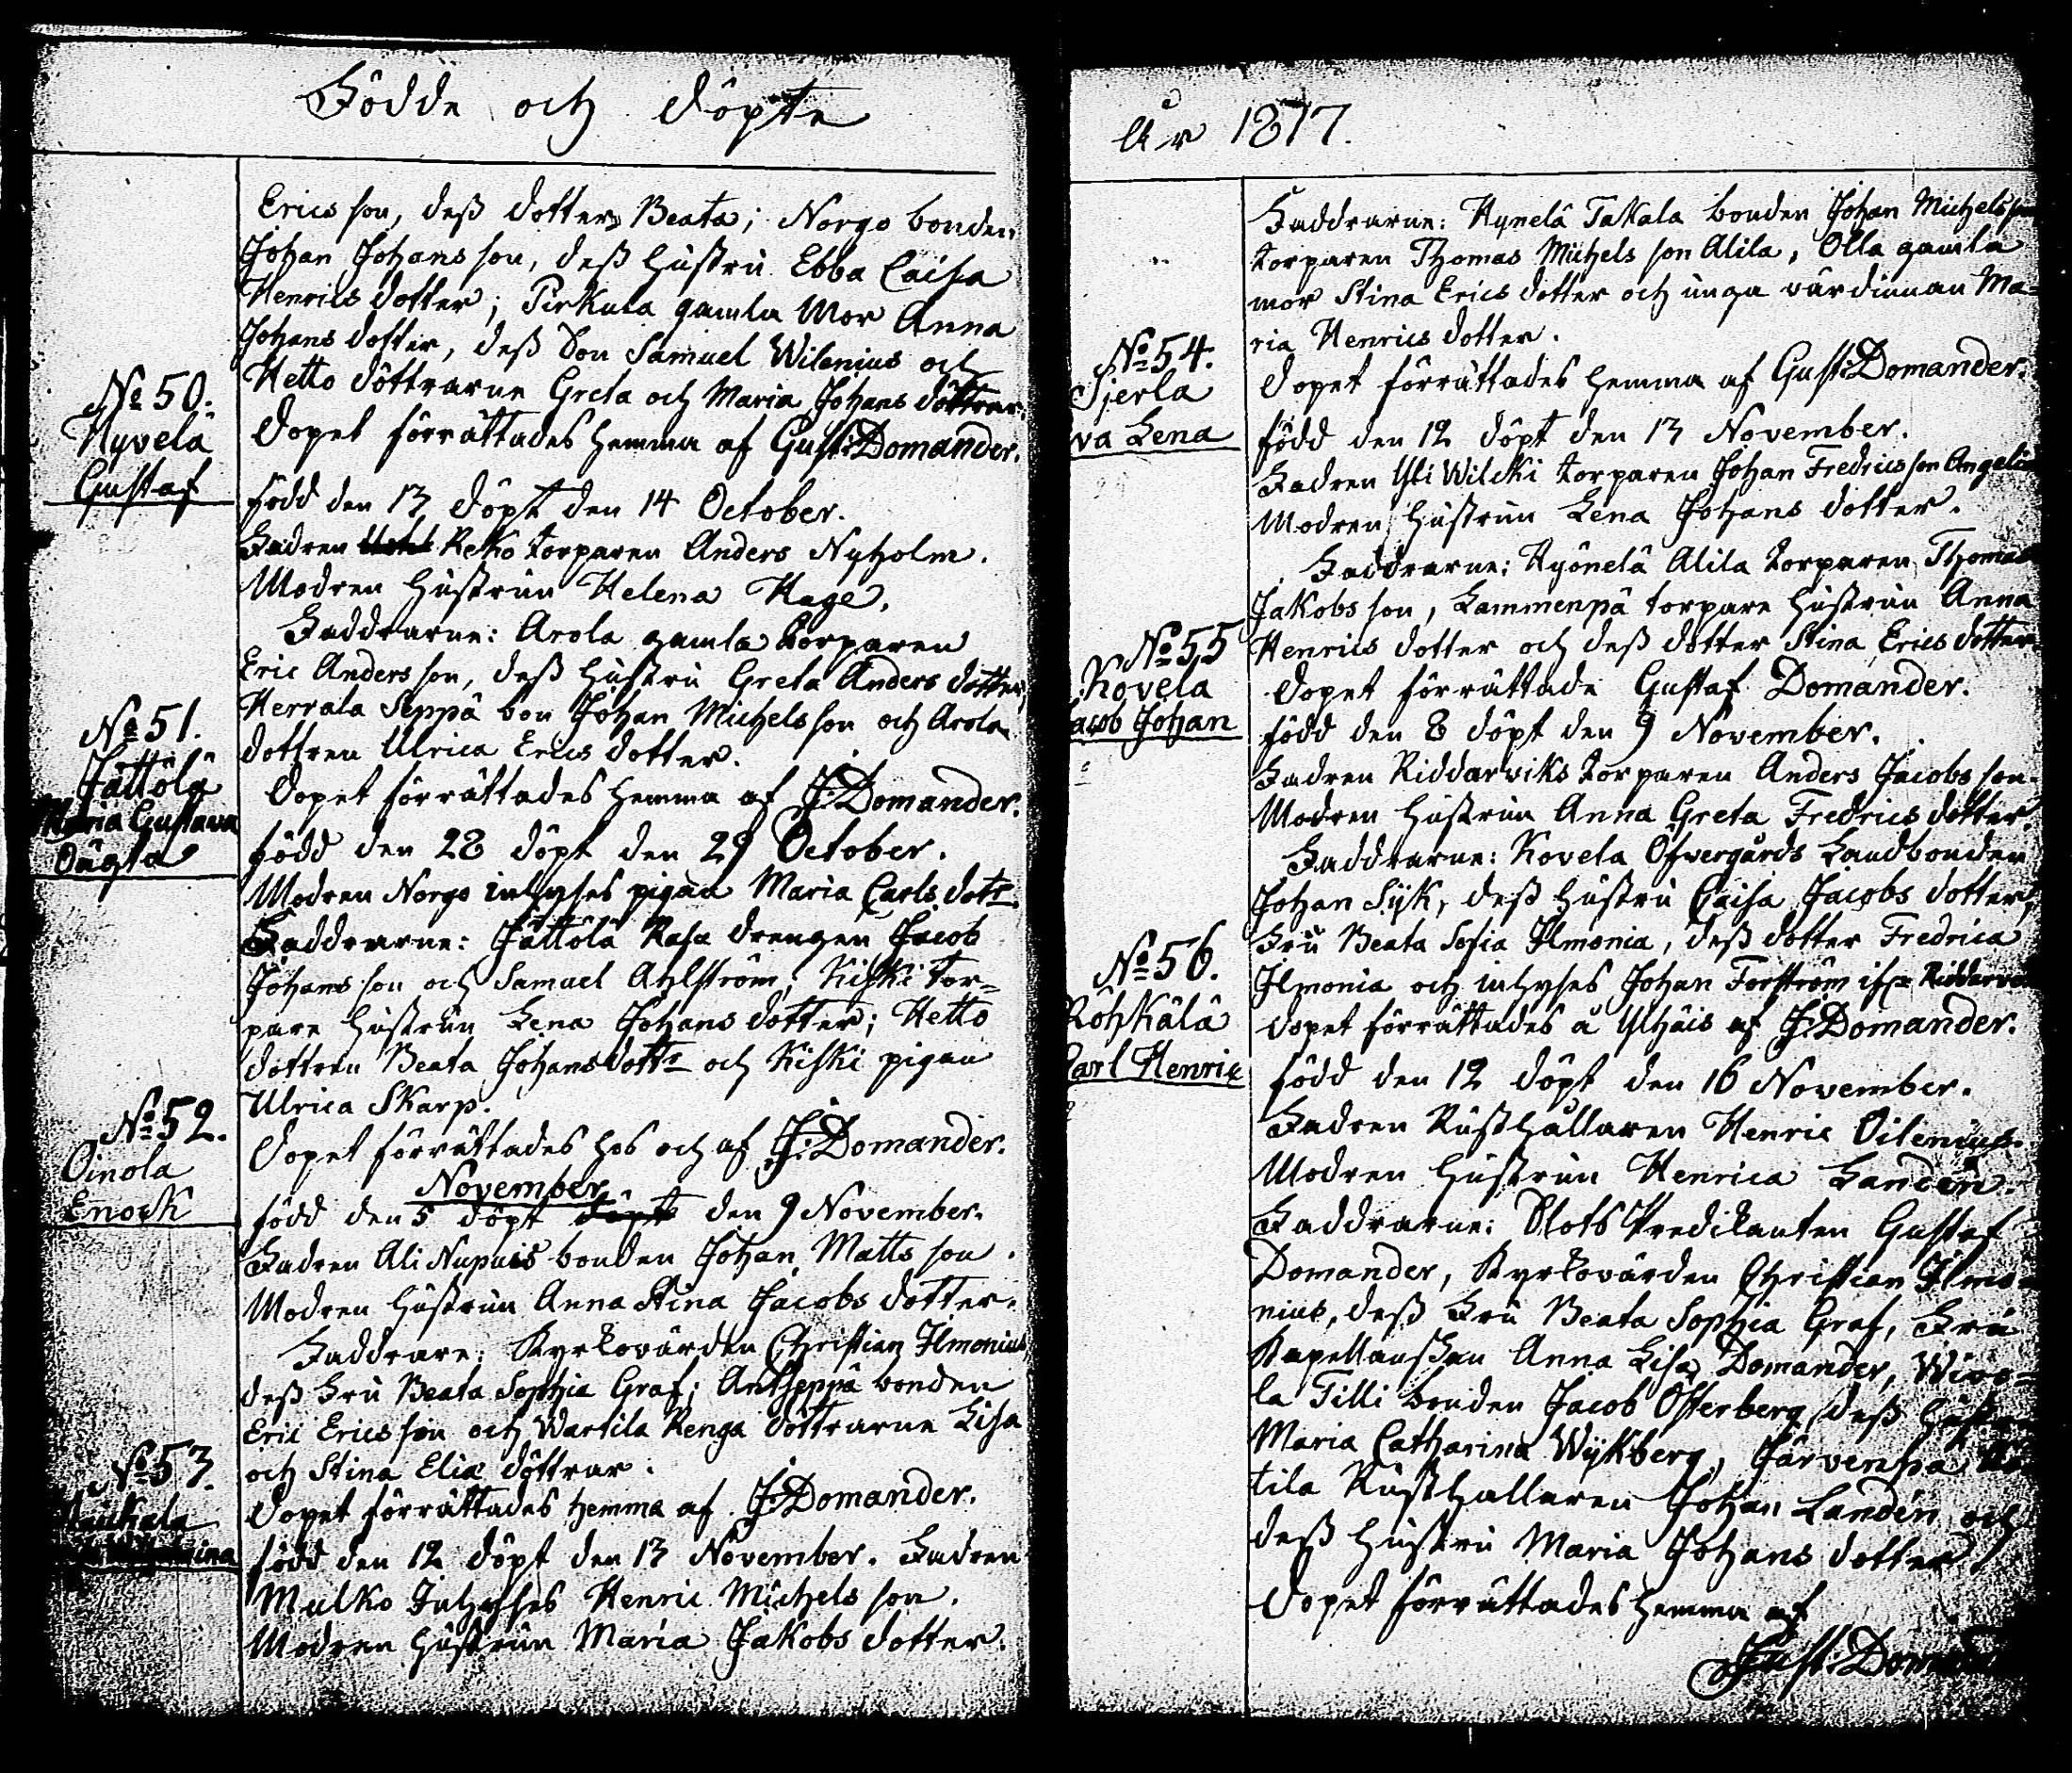 Födde och Döpte
Ericsson, dess dotter Beata; Norgo bonden
Johan Johansson, dess hustru Ebba Caisa
Henrics dotter; Pirkula gamla Mor Anna
Johans dotter, dess Son Samuel Wilenius och
Hetto döttrarne Greta och Maria Johans döttrar.
Dopet förrättades hemma af Gust: Domander.
No 50.
Hyvelä
Gustaf
född den 13 döpt den 14 October.
Fadren Reko torparen Anders Nyholm.
Modren hustrun Helena Hage.
Faddrarne: Arola gamla torparen
Eric Andersson, dess hustru Greta Anders dotter,
Herrala Seppä bon Johan Michelsson och Arola
dottren Ulrica Erics dotter.
Dopet förrättades hemma af J: Domander.
No 51.
Jättölä
Maria Gustava
Oägta
född den 28 döpt den 29 October.
Modren Norgo inhyses pigan Maria Carls dotr
Faddrarne: Jättölä Rasa drengen Jacob
Johansson och Samuel Ahlström, Kiski tor=
pare hustrun Lena Johans dotter; Hetto
dottren Beata Johans dottr och Kiski pigan
Ulrica Skarp.
Dopet förrättades hos och af J: Domander.
November
No 52.
Oinola
Enock
född den 5 döpt döpt den 9 November.
Fadren Ali Nupuis bonden Johan Mattsson.
Modren hustrun Anna Stina Jacobs dotter.
Faddrare: Kyrkovärden Christian Ilmonius,
dess Fru Beata Sophia Graf; Antseppä bonden
Eric Ericsson och Wartila Renga döttrarne Lisa
och Stina Eliæ döttrar.
Dopet förrättades hemma af J: Domander.
No 53.
född den 12 döpt den 13 November. Fadren
Mulko Inhyses Henric Michelsson.
Modren hustrun Maria Jakobs dotter.
År 1817.
Faddrarne: Hynelä Takala bonden Johan Michelsson
torparen Thomas Michelsson Alila, Olla gamla
mor Stina Erics dotter och unga värdinnan Ma=
ria Henrics dotter.
Dopet förrättades hemma af Gust: Domander.
No 54.
Sjerla
va Lena
född den 12 döpt den 13 November.
Fadren Yli Wilcki torparen Johan Fredricsson Angelin
Modren hustrun Lena Johans dotter.
Faddrarne: Hyönelä Alila torparen Thomas
Jakobsson, Lammenpä torpare hustrun Anna
Henrics dotter och dess dotter Stina Erics dotter.
Dopet förrättade Gustaf Domander.
No 55
Kovela
acob Johan
född den 8 döpt den 9 November.
Fadren Riddarviks torparen Anders Jacobsson.
Modren hustrun Anna Greta Fredrics dotter.
Faddrarne: Kovela Öfvergårds Landbonden
Johan Syk, dess hustru Caisa Jacobs dotter,
Fru Beata Sofia Ilmonia, dess dotter Fredrica
Ilmonia och inhyses Johan Forström
Dopet förrättades å Ylhäis af J: Domander.
No 56.
Röhkälä
Carl Henric
född den 12 döpt den 16 November.
Fadren Rusthållaren Henric Oilenius.
Modren hustrun Henrica Landén.
Faddrarne: Slots Predikanten Gustaf
Domander, Kyrkovärden Christian Ilmo=
nius, dess Fru Beata Sophia Graf, Fru
Kapellanskan Anna Lisa Domander, Wivo=
la Tilli bonden Jacob Österberg, dess hustru
Maria Catharina Wykberg, Järvenpä
tila Rusthållaren Johan Landén och
dess hustru Maria Johans dotter.
Dopet förrättades hemma af
Gust: Domander